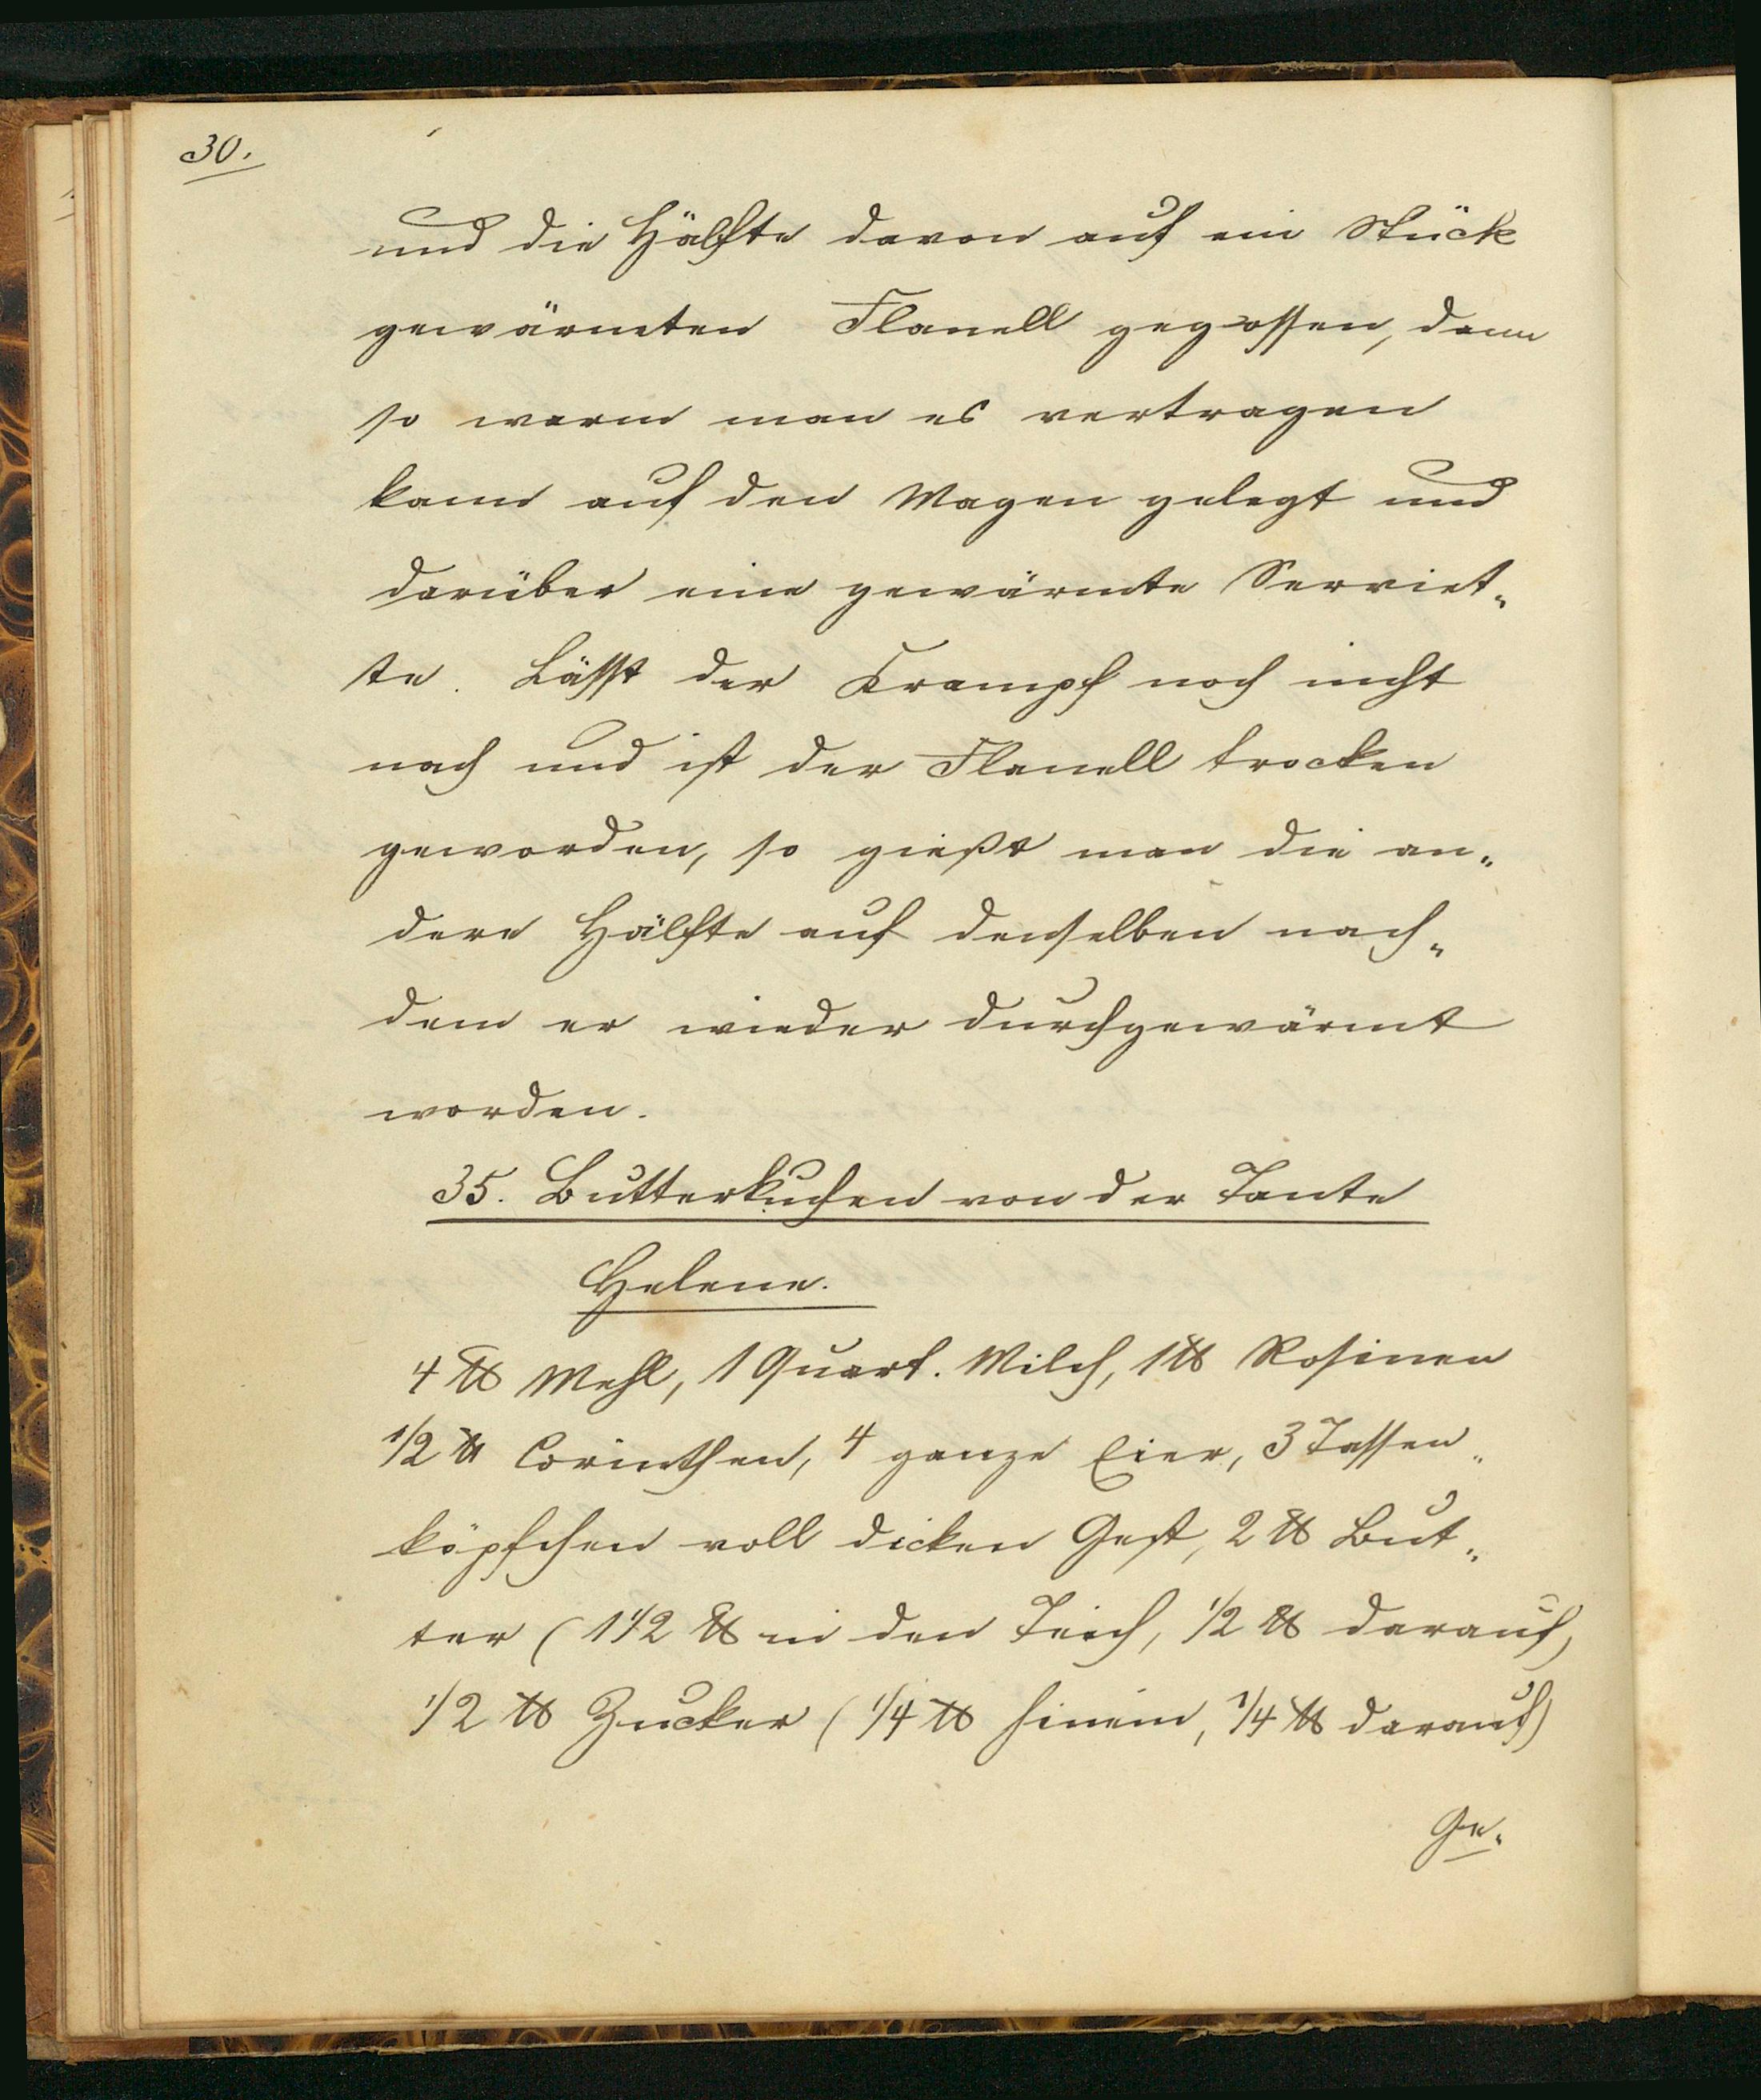 30.
und die Hälfte davon auf ein Stück
gewärmten Flanell gegossen, dann
so warm man es vertragen
kann auf den Magen gelegt und
darüber eine gewärmte Serviet„
te. Lässt der Krampf noch nicht
nach und ist der Flanell trocken
geworden, so gießt man die an„
dere Hälfte auf denselben nach„
dem er wieder durchgewärmt
worden.
35. Butterkuchen von der Tante
Helene.
4 ℔ Mehl, 1 Quart. Milch, 1 ℔ Rosinen
1/2 ℔ Corinthen, 4 ganze Eier, 3 Tassen„
köpfchen voll dicken Gest, 2 ℔ But„
ter (1 1/2 ℔ in den Teich, 1/2 ℔ darauf,
1/2 ℔ Zucker (1/4 ℔ hinein, 1/4 ℔ darauf)
Ge„